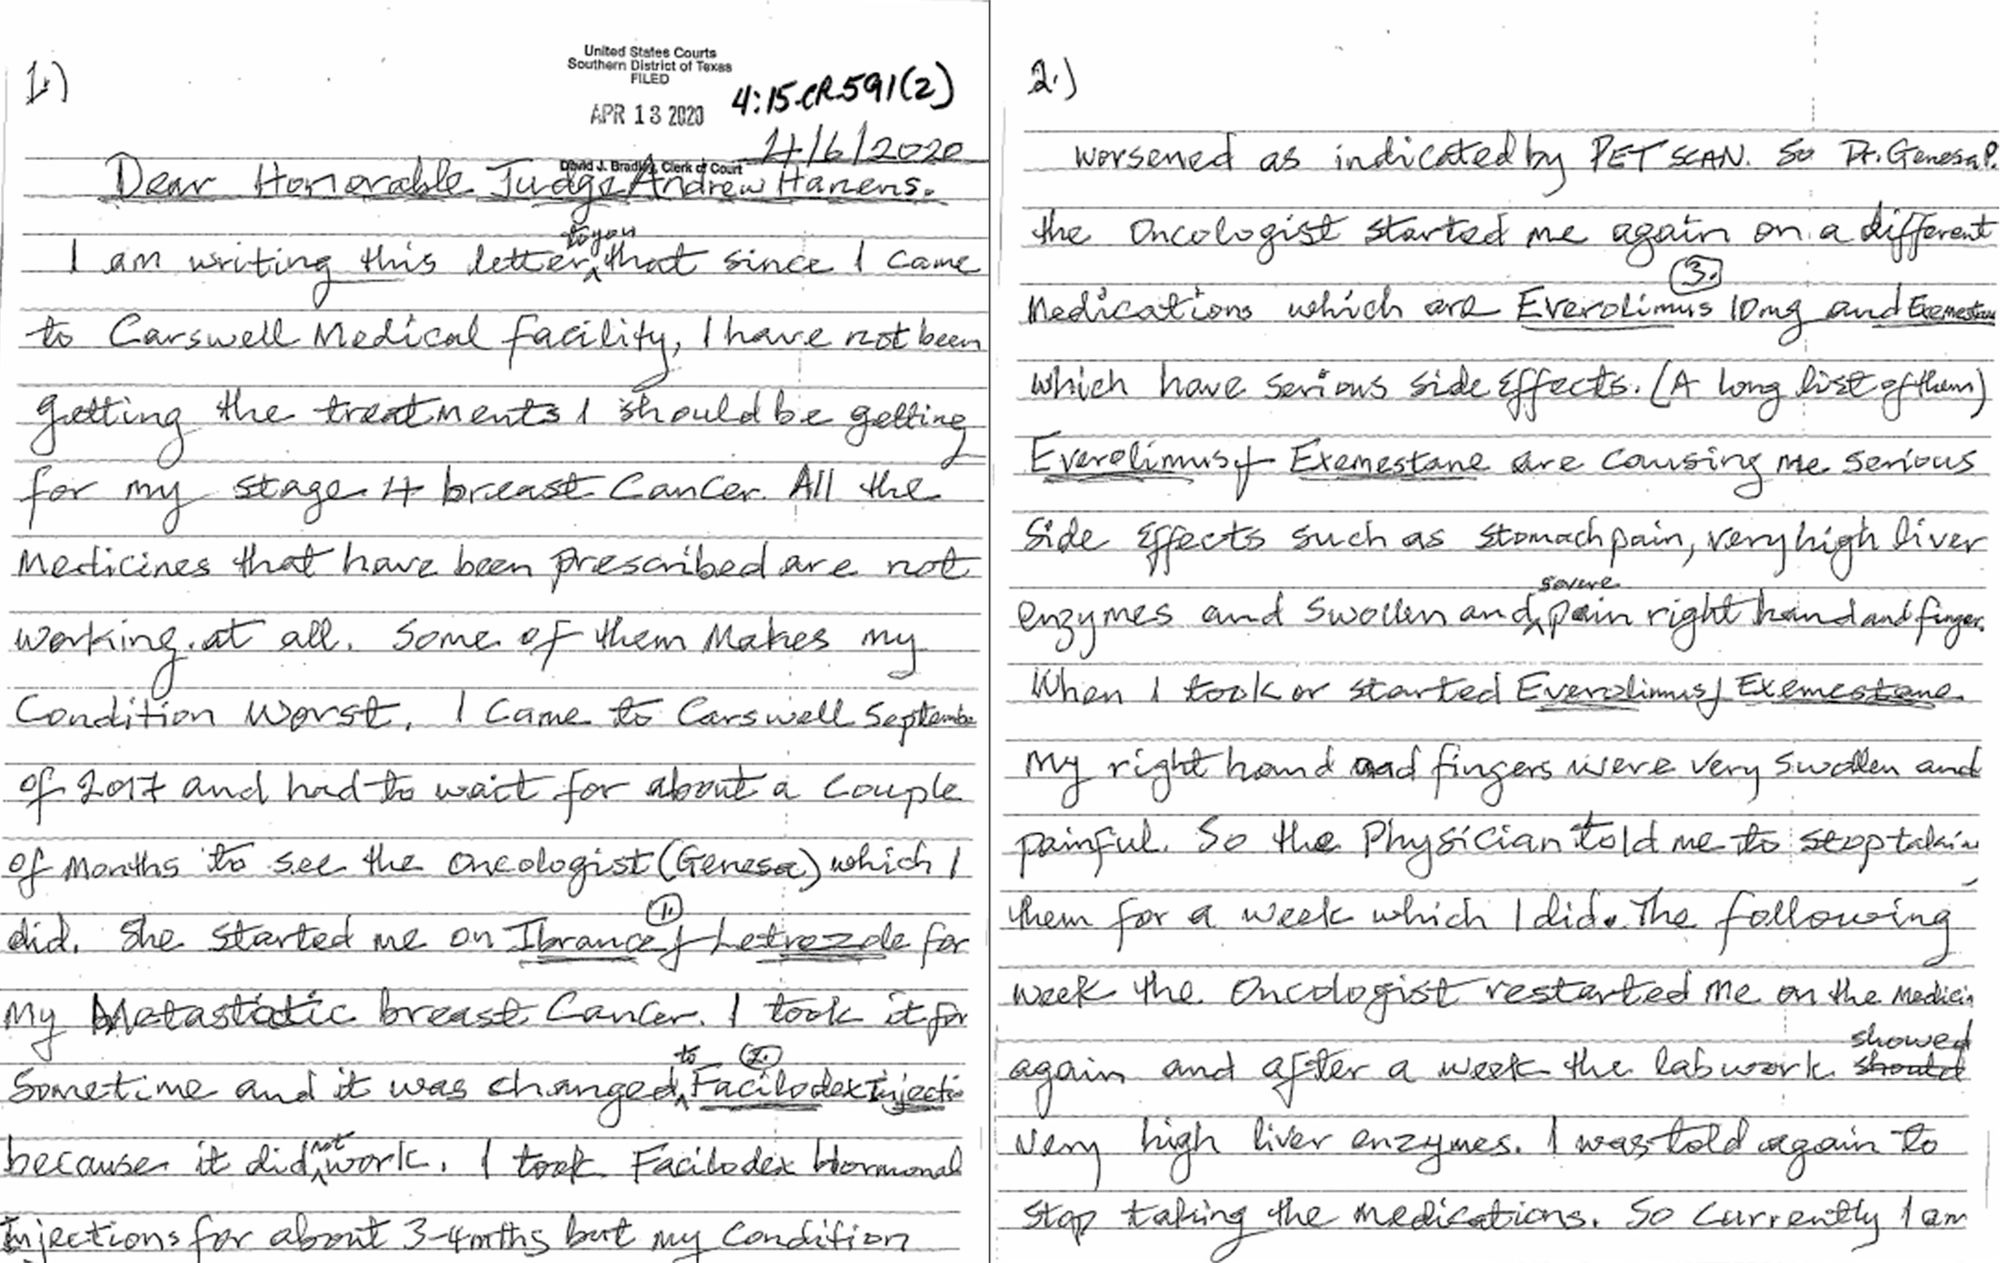 1.)
United States Courts
Southern District of Texas
FILED
APR 13 2020
4:15-CR-591(2)
4/6/2020
David J. Bradley, Clerk of Court
Dear Honorable Judge Andrew Hanens.
to you
I am writing this letter ^ that since I came
to Carswell Medical facility, I have not been
getting the treatments I should be getting
for my stage 4 breast Cancer. All the
Medicines that have been prescribed are not
working at all. Some of them Makes my
Condition Worst. I Came to Carswell Septembe
of 2017 and had to wait for about a couple
of Months to see the Oncologist (Genesa) which I
did. She started me on Ibrance + Letrozole for
(1.)
My Metastatic breast Cancer. I took it for
to (2.)
Sometime and it was changed ^ Facilodex Injectio
because it did ^ work. I took Facilodex Hormonal
not
Injections for about 3-4mths but my Condition
2.)
worsened as indicated by PET SCAN. So Dr. Genesa P.
the Oncologist started me again on a different
(3.)
Medications which are Everolimus 10mg and Exemestane
which have serious side Effects. (A long list of them)
Everolimus + Exemestane are causing me serious
Side Effects such as stomach pain, very high liver
severe
enzymes and Swollen and ^ pain right hand and finger.
When I took or started Everolimus + Exemestane
My right hand and fingers were very swollen and
painful. So the Physician told me to stop takin
them for a week which I did. The following
week the Oncologist restarted me on the Medicin
showed
again and after a week the lab work should
very high liver enzymes. I was told again to
stop taking the medications. So Currently I am